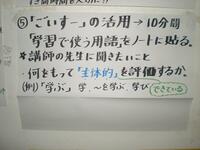 ⑤「ごいすー」の活用→10分間
「学習で使う用語」をノートに貼る。
*講師の先生に聞きたいこと
・何をもって「主体的」を評価するか。
(例)「学ぶ」 学、〜を学ぶ、学び
できている